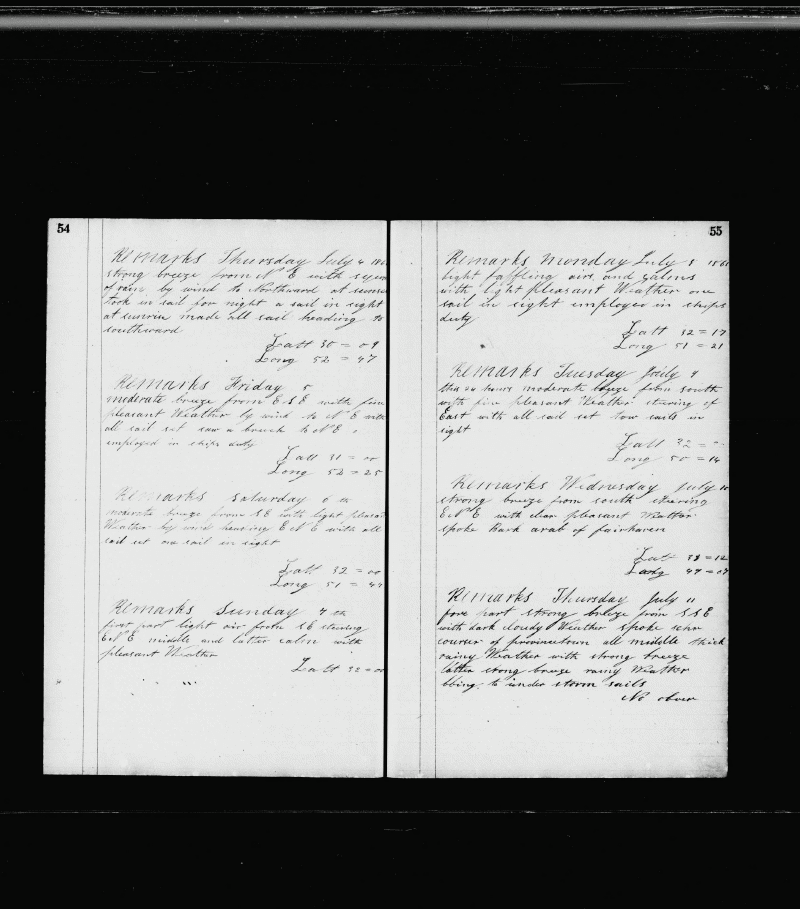 54
Remarks Thursday July 4
strong breeze from N E with
of rain by wind to Northward at
took in sail for night a sail in sight
at sunrise made all sail heading to
southward
Latt 30 = 09
Long 52 = 47
Remarks Friday 5
moderate breeze from E S E with fine
pleasant Weather by wind to N E with
all sail set saw a to N E
employed in ships duty
Latt 31 = 00
Long 52 = 25
Remarks Saturday 6 th
moderate breeze from S E with light pleasant
Weather by wind heading E N E with all
sail set one sail in sight
Latt 32 = 00
Long 51 =
Remarks Sunday 7 th
first part light air from S E steering
E N E middle and latter calm with
pleasant Weather
Latt 32 = 00
55
Remarks monday July 8
light baffling airs and calms
with light pleasant Weather one
sail in sight employed in ships
duty
Latt 32 = 17
Long 51 = 21
Remarks Tuesday July 9
this 24 hours moderate breeze from south
with fine pleasant Weather steering
East with all sail set sails in
sight
Latt 32 =
Long 50 = 14
Remarks Wednesday July 10
strong breeze from south steering
E N E with clear pleasant Weather
spoke Bark arab of fairhaven
Latt = 12
Long
Remarks Thursday July 11
fore part strong breeze from S S E
with dark cloudy Weather spoke schr
courser of provincetown all middle thick
rainy Weather with strong breeze
latter strong breeze rainy Weather
to under storm sails
No obser